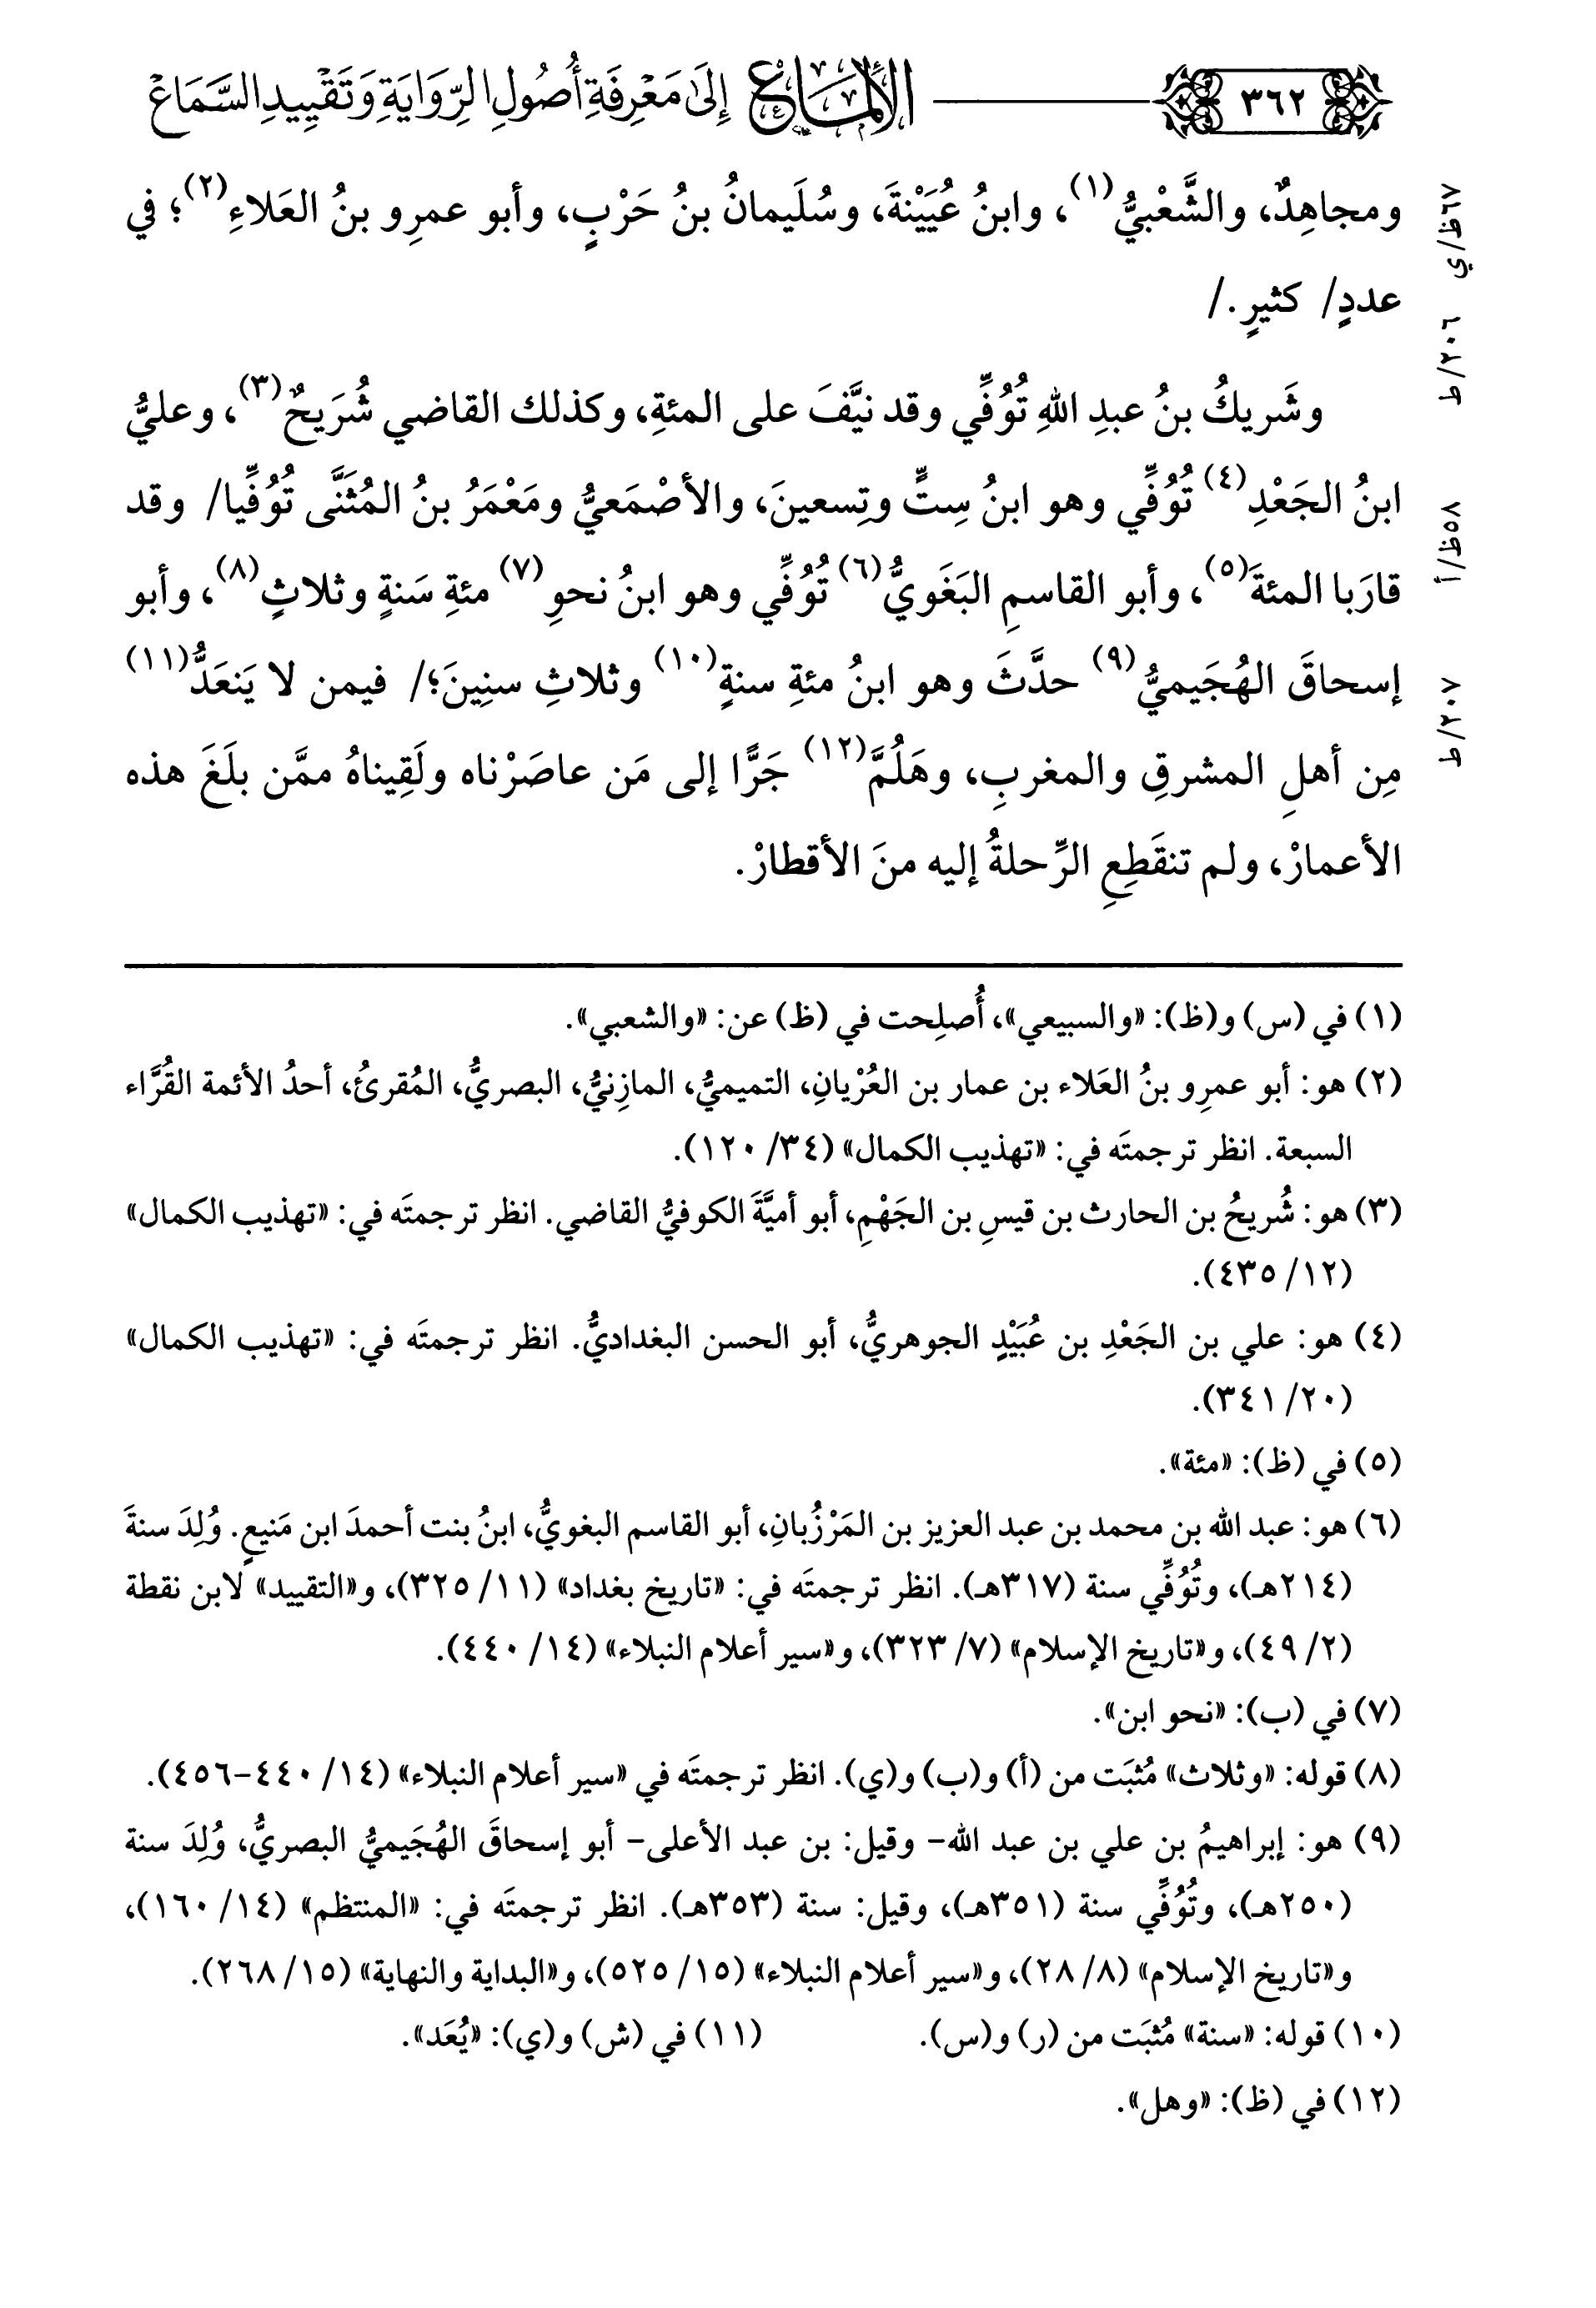 ٣٦٢ الإلماع إِلَىٰ مَعْرِفَةِ أُصُولِ الرِّوَايَةِ وَتَقْيِيدِ السَّمَاعْ
ومجاهِدٌ، والشَّعْبيُّ(١)، وابنُ عُيَيْنةَ، وسُلَيمانُ بنُ حَرْبٍ، وأبو عمرِو بنُ العَلاءِ(٢)؛ في
عددٍ/ كثيرٍ./
وشَريكُ بنُ عبدِ اللهِ تُوُفِّي وقد نيَّفَ على المئةِ، وكذلك القاضي شُرَيحٌ(٣)، وعليُّ
ابنُ الجَعْدِ(٤) تُوُفِّي وهو ابنُ سِتٍّ وتِسعينَ، والأصْمَعيُّ ومَعْمَرُ بنُ المُثَنَّى تُوُفِّيا/ وقد
قارَبا المئةَ(٥)، وأبو القاسمِ البَغَويُّ(٦) تُوُفِّي وهو ابنُ نحوِ(٧) مئةِ سَنةٍ وثلاثٍ(٨)، وأبو
إسحاقَ الهُجَيميُّ(٩) حدَّثَ وهو ابنُ مئةِ سنةٍ(١٠) وثلاثِ سنِينَ؛/ فيمن لا يَنعَدُّ(١١)
مِن أهلِ المشرقِ والمغربِ، وهَلُمَّ(١٢) جَرًّا إلى مَن عاصَرْناه ولَقِيناهُ ممَّن بلَغَ هذه
الأعمارْ، ولم تنقَطِعِ الرِّحلةُ إليه منَ الأقطارْ.
٦٧ظ/ي
٢٠٦/ط
٥٨ظ/أ
٢٠٧/ط
(١) في (س) و(ظ): «والسبيعي»، أُصلِحت في (ظ) عن: «والشعبي».
(٢) هو: أبو عمرِو بنُ العَلاء بن عمار بن العُرْيانِ، التميميُّ، المازِنيُّ، البصريُّ، المُقرئُ، أحدُ الأئمة القُرَّاء
السبعة. انظر ترجمتَه في: «تهذيب الكمال» (٣٤/ ١٢٠).
(٣) هو: شُريحُ بن الحارث بن قيسِ بن الجَهْمِ، أبو أميَّةَ الكوفيُّ القاضي. انظر ترجمتَه في: «تهذيب الكمال»
(١٢/ ٤٣٥).
(٤) هو: علي بن الجَعْدِ بن عُبَيْدٍ الجوهريُّ، أبو الحسن البغداديُّ. انظر ترجمتَه في: «تهذيب الكمال»
(٢٠/ ٣٤١).
(٥) في (ظ): «مئة».
(٦) هو: عبد الله بن محمد بن عبد العزيز بن المَرْزُبانِ، أبو القاسم البغويُّ، ابنُ بنت أحمدَ ابن مَنيعٍ. وُلِدَ سنةَ
(٢١٤هـ)، وتُوُفِّي سنة (٣١٧هـ). انظر ترجمتَه في: «تاريخ بغداد» (١١/ ٣٢٥)، و«التقييد» لابن نقطة
(٢/ ٤٩)، و«تاريخ الإسلام» (٧/ ٣٢٣)، و«سير أعلام النبلاء» (١٤/ ٤٤٠).
(٧) في (ب): «نحو ابن».
(٨) قوله: «وثلاث» مُثبَت من (أ) و(ب) و(ي). انظر ترجمتَه في «سير أعلام النبلاء» (١٤/ ٤٤٠-٤٥٦).
(٩) هو: إبراهيمُ بن علي بن عبد الله- وقيل: بن عبد الأعلى- أبو إسحاقَ الهُجَيميُّ البصريُّ، وُلِدَ سنة
(٢٥٠هـ)، وتُوُفِّي سنة (٣٥١هـ)، وقيل: سنة (٣٥٣هـ). انظر ترجمتَه في: «المنتظم» (١٤/ ١٦٠)،
و«تاريخ الإسلام» (٨/ ٢٨)، و«سير أعلام النبلاء» (١٥/ ٥٢٥)، و«البداية والنهاية» (١٥/ ٢٦٨).
(١٠) قوله: «سنة» مُثبَت من (ر) و(س). (١١) في (ش) و(ي): «يُعَد».
(١٢) في (ظ): «وهل».